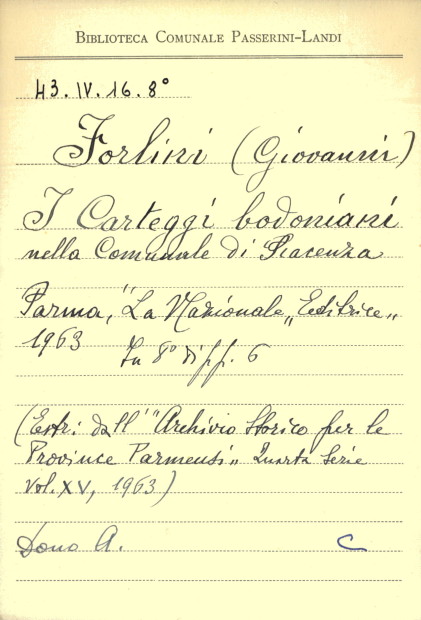 BIBLIOTECA COMUNALE PASSERINI-LANDI
43.IV.16.8°
Forlini (Giovanni)
I Carteggi bodoniani
nella Comunale di Piacenza
Parma, "La Nazionale„ Editrice„
1963 In 8° di ff. 6
(Estr: dall' "Archivio Storico per le
Province Parmensi„ Quarta Serie
vol. XV, 1963)
Dono A.
C